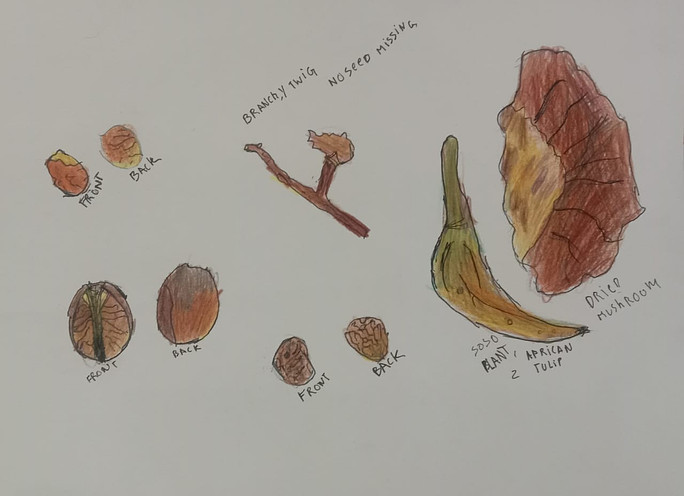 BRANCHY TWIG
NO SEED MISSING
FRONT
BACK
FRONT
BACK
FRONT
BACK
SOSO
PLANT, AFRICAN
2 TULIP
DRIED
MUSHROOM